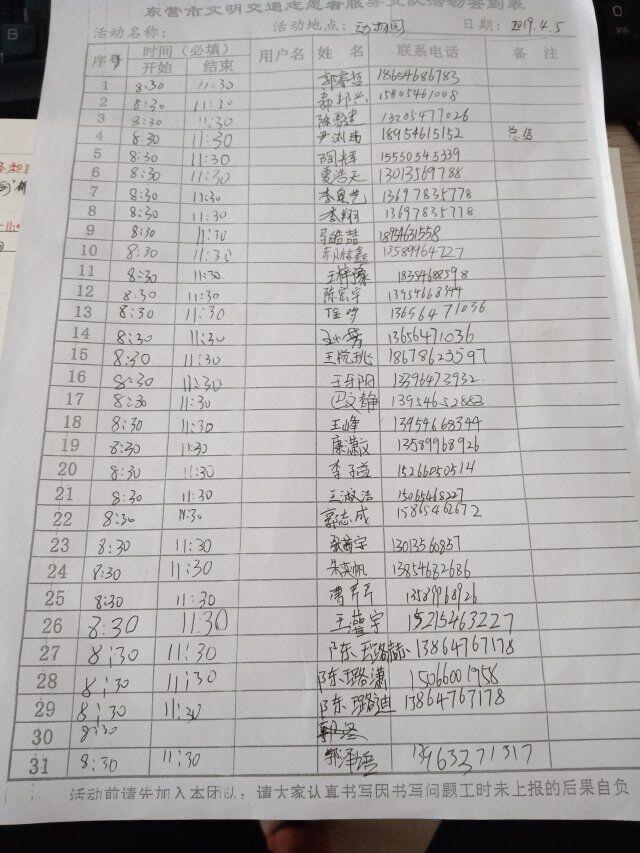 东营市文明交通志愿者服务支队活动签到表
活动名称： 活动地点：动物园 日期：2019.4.5
序号 时间（必填） 用户名 姓 名 联系电话 备 注
开始 结束
1 8:30 11:30 郭睿哲 18654686783
2 8:30 11:30 15805461008
3 8:30 11:30 13205477026
4 8:30 11:30 18954615152 总结
5 8:30 11:30 陶辉 15550545339
6 8:30 11:30 夏浩天 13013569788
7 8:30 11:30 13697835778
8 8:30 11:30 李翔 13697835778
9 8:30 11:30 18954631558
10 8:30 11:30 13589964727
11 8:30 11:30 王梓豫 18354688598
12 8:30 11:30 陈宸宇 13954668344
13 8:30 11:30 13656471036
14 8:30 11:30 13656471036
15 8:30 11:30 18678623597
16 8:30 11:30 王午阳 13396473932
17 8:30 11:30 巴文静 13954652883
18 8:30 11:30 王峰 13954668344
19 8:30 11:30 康潇文 13589968926
20 8:30 11:30 李子益 15266050514
21 8:30 11:30 王淑洁 15065468227
22 8:30 11:30 郭志成 15865462672
23 8:30 11:30 张茜宇 13013560857
24 8:30 11:30 朱奕帆 13854682686
25 8:30 11:30 曹芹芹 13589968926
26 8:30 11:30 王馨宇 15215463227
27 8:30 11:30 陈璐赫 13864767178
28 8:30 11:30 陈璐潇 15066001958
29 8:30 11:30 陈璐迪 13864767178
30 8:30
31 8:30 11:30 郭泽语 13963371317
活动前请先加入本团队，请大家认真书写因书写问题工时未上报的后果自负